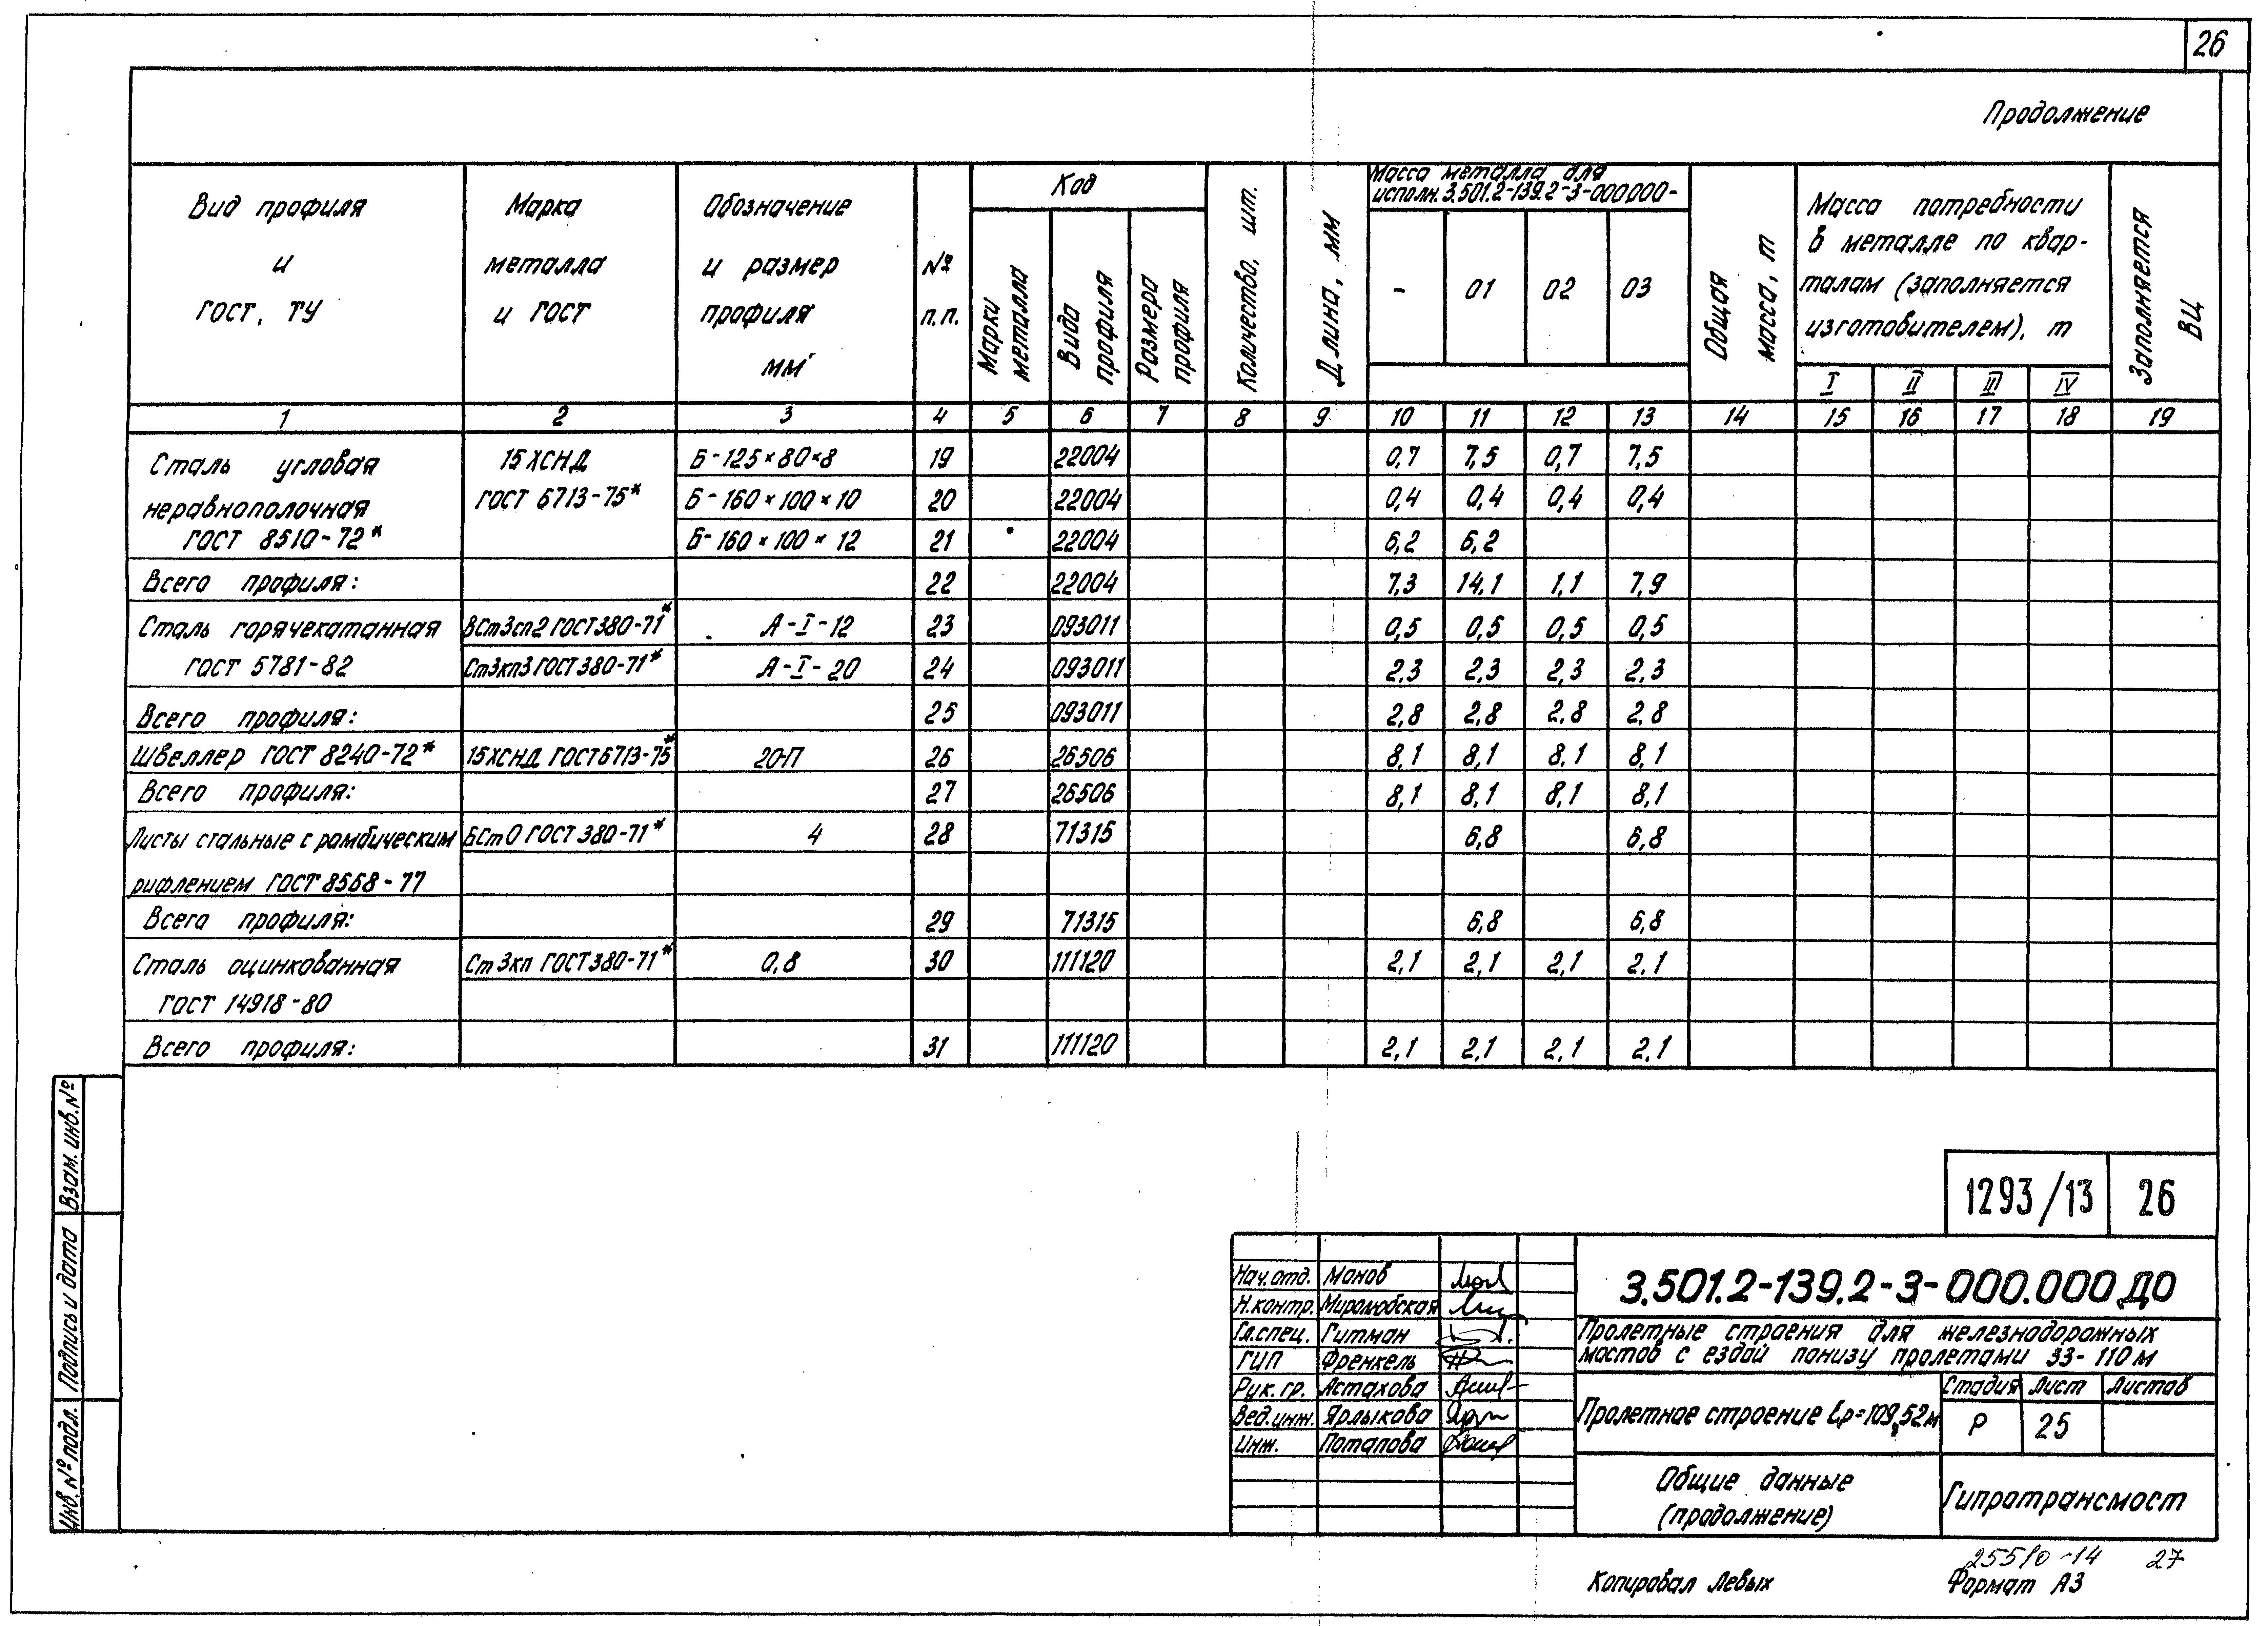 26
Продолжение
Вид профиля и ГОСТ, ТУ
Марка металла и ГОСТ
Обозначение и размер профиля мм
№ п.п.
Код
Марки металла
Вида профиля
Размера профиля
Количество, шт.
Длина, мм
Масса металла для
исполн. 3.501.2-139.2-3-000.000-
- 01 02 03
Общая масса, т
Масса потребности
в металле по квар-
талам (заполняется
изготовителем), т
I II III IV
Заполняется ВЦ
1 2 3 4 5 6 7 8 9 10 11 12 13 14 15 16 17 18 19
Сталь угловая 15ХСНД Б-125×80×8 19 22004 0,7 7,5 0,7 7,5
неравнополочная ГОСТ 6713-75* Б-160×100×10 20 22004 0,4 0,4 0,4 0,4
ГОСТ 8510-72* Б-160×100×12 21 22004 6,2 6,2
Всего профиля: 22 22004 7,3 14,1 1,1 7,9
Сталь горячекатанная ВСт3сп2 ГОСТ 380-71* А-I-12 23 093011 0,5 0,5 0,5 0,5
ГОСТ 5781-82 Ст3кп3 ГОСТ 380-71* А-I-20 24 093011 2,3 2,3 2,3 2,3
Всего профиля: 25 093011 2,8 2,8 2,8 2,8
Швеллер ГОСТ 8240-72* 15ХСНД ГОСТ 6713-75* 20-П 26 26506 8,1 8,1 8,1 8,1
Всего профиля: 27 26506 8,1 8,1 8,1 8,1
Листы стальные с ромбическим БСт0 ГОСТ 380-71* 4 28 71315 6,8 6,8
рифлением ГОСТ 8568-77
Всего профиля: 29 71315 6,8 6,8
Сталь оцинкованная Ст3кп ГОСТ 380-71* 0,8 30 111120 2,1 2,1 2,1 2,1
ГОСТ 14918-80
Всего профиля: 31 111120 2,1 2,1 2,1 2,1
Взам. инв. №
Подпись и дата
Инв. № подл.
1293/13 26
Нач. отд. Монов
Н.контр. Миролюбская
Гл.спец. Гитман
ГИП Френкель
Рук. гр. Астахова
Вед.инж. Ярлыкова
Инж. Потапова
3.501.2-139.2-3-000.000 ДО
Пролетные строения для железнодорожных
мостов с ездой понизу пролетами 33-110 м
Пролетное строение Lр=109,52м
Стадия Лист Листов
Р 25
Общие данные
(продолжение)
Гипротрансмост
25510-14 27
Копировал Левых Формат А3